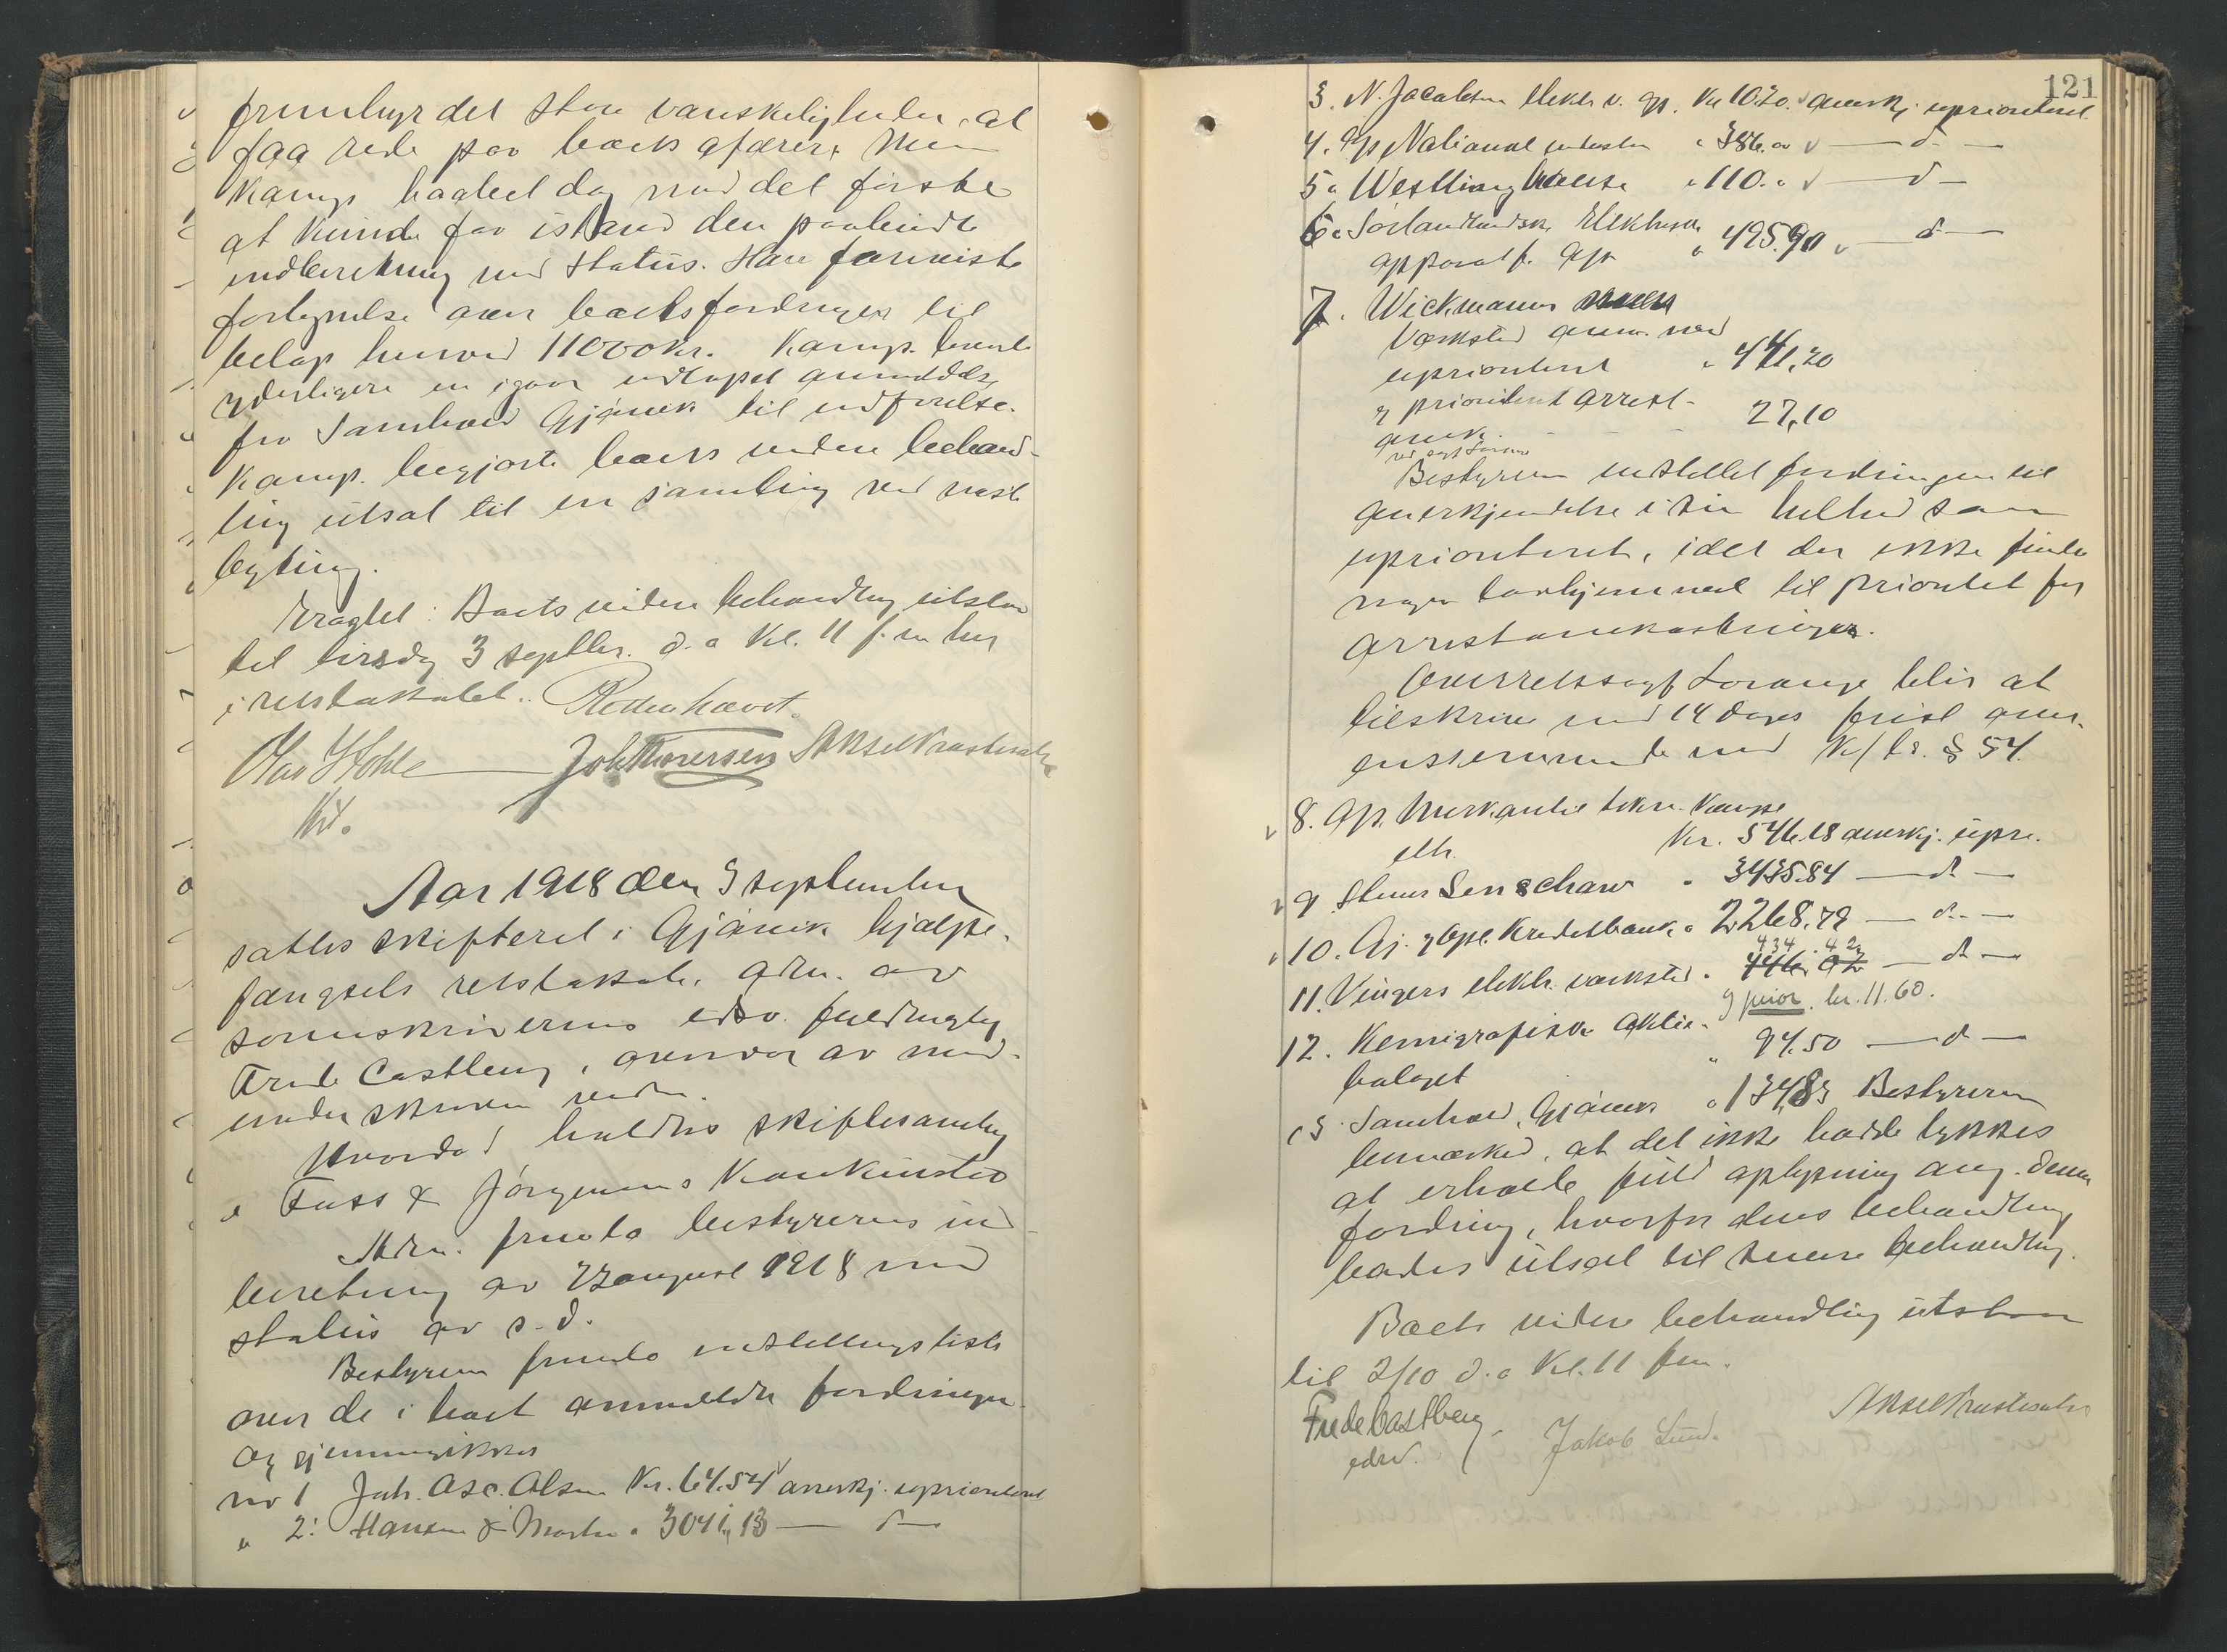 frembyr det store vanskeligheder at
faa rede paa boets affærer. Men
Kamp. haabet dog med det første
at kunde faa istand den paabudte
indberetning med status. Han foreviste
fortegnelse over boets fordringer til
beløp henved 11000 kr. Kamp.
yderligere en igaar indløpet anmeldelse
fra Samhold Gjøvik til
Kamp. begjærte boets videre behand-
ling utsat til en samling ved næste
byting.
Eragtet: Boets videre behandling utstaar
til tirsdag 3 septbr. d. a. Kl. 11 f. m. her
i retslokalet.
Joh Thoresen
Aar 1918 den 3 september
sattes skifteret i Gjøvik hjælpe-
fængsels retslokale, adm. av
sorenskriverens edsv. fuldmægtig
Frede Castberg, overvær av med-
underskrevne vidne.
Hvorda holdtes skiftesamling
i Fuss & Jørgensens konkursbo
Adm. fremla bestyrerens ind-
beretning av 22 august 1918 med
status av s. d.
Bestyreren fremla indstillingsliste
over de i boet anmeldte fordringer
og gjennemgikkes
no 1 Joh. Asc. Olsen Kr. 64.54 anerkj. uprioritert
" 2: Hansen & " 3041,13 — d —
121
3. N. Jacobsen elektr. v. Gj. Kr 10.20. anerkj. uprioritert
4. Gj. National " 386.00 — d —
5. Westling " 110. " — d —
6. Sørlandske Elektriske " 495.90 — d —
apparatf. Gjø
7. Wickmanns
Verksted anm. med
uprioritert " 441,20
og prioritert arrest- 27,10
Bestyreren indstillet fordringen til
anerkjendelse i sin helhed som
uprioritert, idet der ikke findes
nogen lovhjemmel til prioritet for
arrestomkostninger.
Overretssagf Lorange blir at
tilskrive med 14 dages frist over-
ensstemmende med K/ls. § 54.
8. Gj. Merkantile tekn. Kompe
etb. Kr. 546.18 anerkj. upri.
9. Steen Lenschow " 3435.84 — d —
10. Gj. og Opl. Kreditbank " 2268.79 — d —
434.42
11. Vingers elektr. verksted " 446.02 — d —
og prior. kr. 11.60.
12. Kemigrafiske Aktie-
selskapet " 94.50 — d —
13. Samhold, Gjøvik " 134,83 Bestyreren
bemerket, at det ikke hadde lykkes
at erholde fuld oplysning ang. denne
fordring, hvorfor dens behandling
bades utsat til senere behandling.
Boets videre behandling utstaar
til 2/10 d. a. Kl. 11 fm.
Frede Castberg
edsv. Jakob Lund.